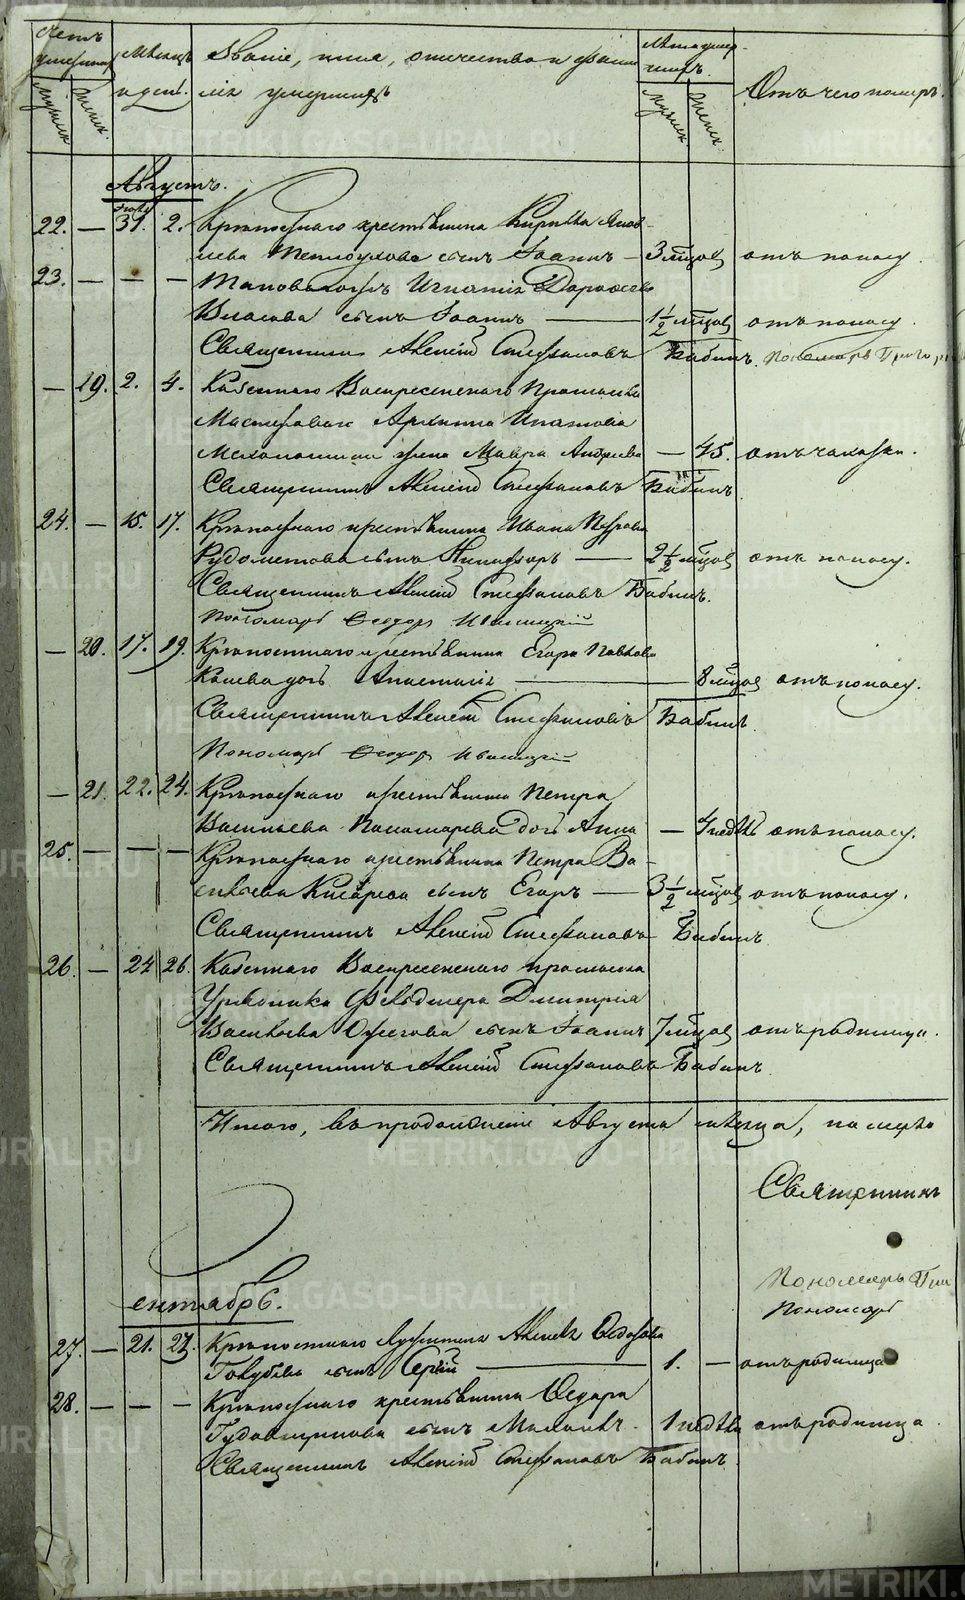 Счетъ умершихъ
Мѣсяцъ и день.
Званіе, имя, отчество и фами
лія умершихъ
Лета умер-
шихъ.
Отъ чего померъ.
Мужск.
Женск.
Мужск.
Женск.
Августъ.
22. — 31. 2. Крѣпостнаго крестьянина Кирилла Яков-
лева сынъ Іоаннъ — 3 мѣцов отъ поносу.
23. — — — Игнатія
Власова сынъ Іоаннъ — 1 1/2 мѣцов отъ поносу.
Священникъ Алексій Стефановъ Бабинъ. Пономарь Григо
— 19. 2. 4. Казеннаго Воскресенскаго Промысла
Мастероваго Архипа Ипатова
жена Мавра Андреева — 45. отъ чахотки.
Священникъ Алексій Стефановъ Бабинъ.
24. — 15. 17. Крѣпостнаго крестьянина Ивана Петрова
Рудометова сынъ Никифоръ — 2 1/2 мѣцов отъ поносу.
Священникъ Алексій Стефановъ Бабинъ.
Пономарь Ѳеодоръ
— 20. 17. 19. Крѣпостнаго крестьянина Егора Павлова
дочь Анастасія — 8 мѣцов отъ поносу.
Священникъ Алексій Стефановъ Бабинъ
Пономарь Ѳеодоръ
— 21. 22. 24. Крѣпостнаго крестьянина Петра
Васильева Пономарева дочь Анна — 4 недѣль отъ поносу.
25. — — — Крѣпостнаго крестьянина Петра Ва-
сильева сынъ Егоръ — 3 1/2 мѣцов отъ поносу.
Священникъ Алексій Стефановъ Бабинъ
26. — 24 26. Казеннаго Воскресенскаго промысла
Урядника Фельдшера Дмитрія
Васильева Ожегова сынъ Іоаннъ 7 мѣцов отъ родимца.
Священникъ Алексій Стефановъ Бабинъ
Итого, въ продолженіе Августа мѣсяца, померло
Священникъ
Пономарь Гри
Пономарь
Сентябрь.
27. — 21. 23. Крѣпостнаго Алексѣя Ѳедорова
Голубева сынъ Сергій — 1. — отъ родимца
28. — — — Крѣпостнаго крестьянина Ѳедора
сынъ — 1 недѣли отъ родимца.
Священникъ Алексій Стефановъ Бабинъ
METRIKI.GASO-URAL.RU